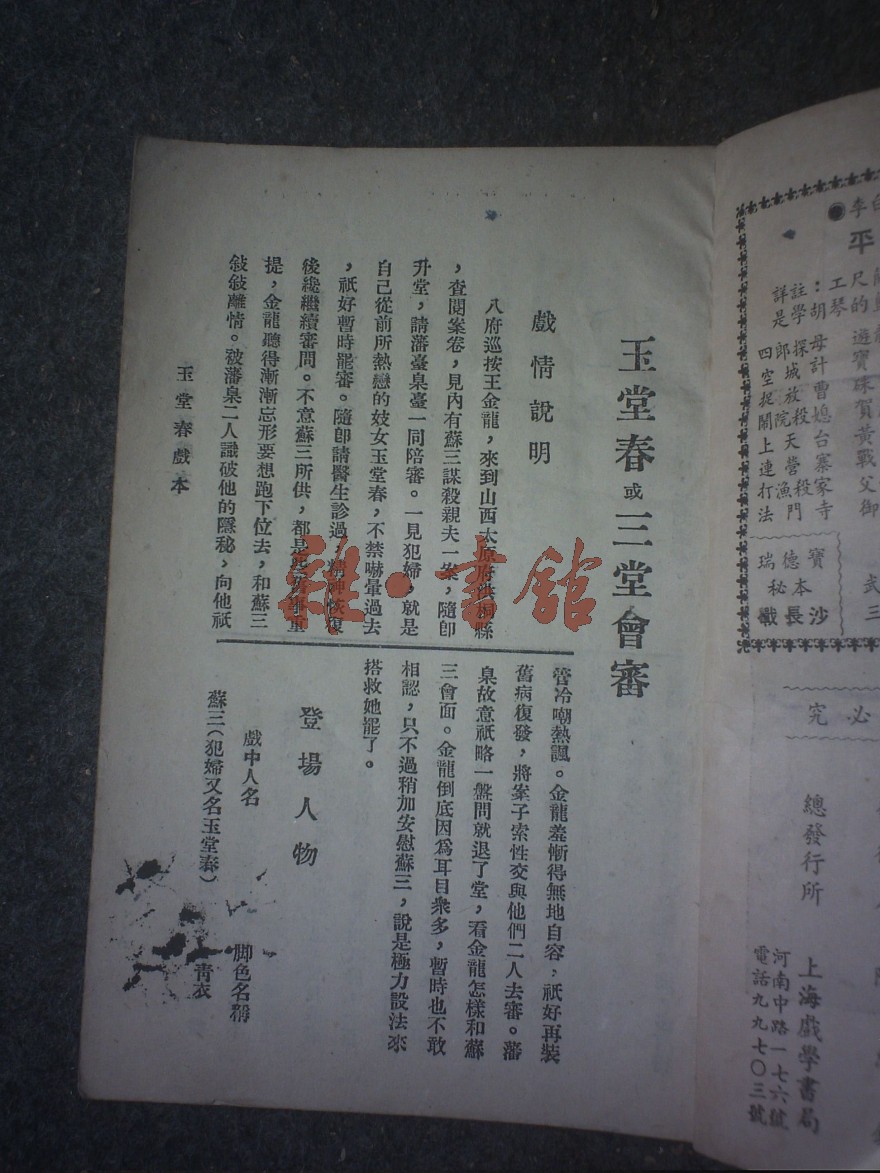 玉堂春或三堂會審
戲情說明
八府巡按王金龍，來到山西太原府洪桐縣
，查閱案卷，見內有蘇三謀殺親夫一案，隨卽
升堂，請藩臺臬臺一同陪審。一見犯婦，就是
自己從前所熱戀的妓女玉堂春，不禁嚇暈過去
，祇好暫時罷審。隨卽請醫生診過，精神恢復
後纔繼續審問。不意蘇三所供，都是些舊事重
提，金龍聽得漸漸忘形要想跑下位去，和蘇三
敍敍離情。被藩臬二人識破他的隱秘，向他祇
管冷嘲熱諷。金龍羞慚得無地自容，祇好再裝
舊病復發，將案子索性交與他們二人去審。藩
臬故意祇略一盤問就退了堂，看金龍怎樣和蘇
三會面。金龍倒底因爲耳目衆多，暫時也不敢
相認，只不過稍加安慰蘇三，說是極力設法來
搭救她罷了。
登場人物
戲中人名 脚色名稱
蘇三（犯婦又名玉堂春） 青衣
玉堂春戲本
雜·書館
李白
平
工尺
詳註
瑞德寶
秘本
戰長沙
武
三
必究
總發行所
上海戲學書局
河南中路一七六號
電話九九七〇三號